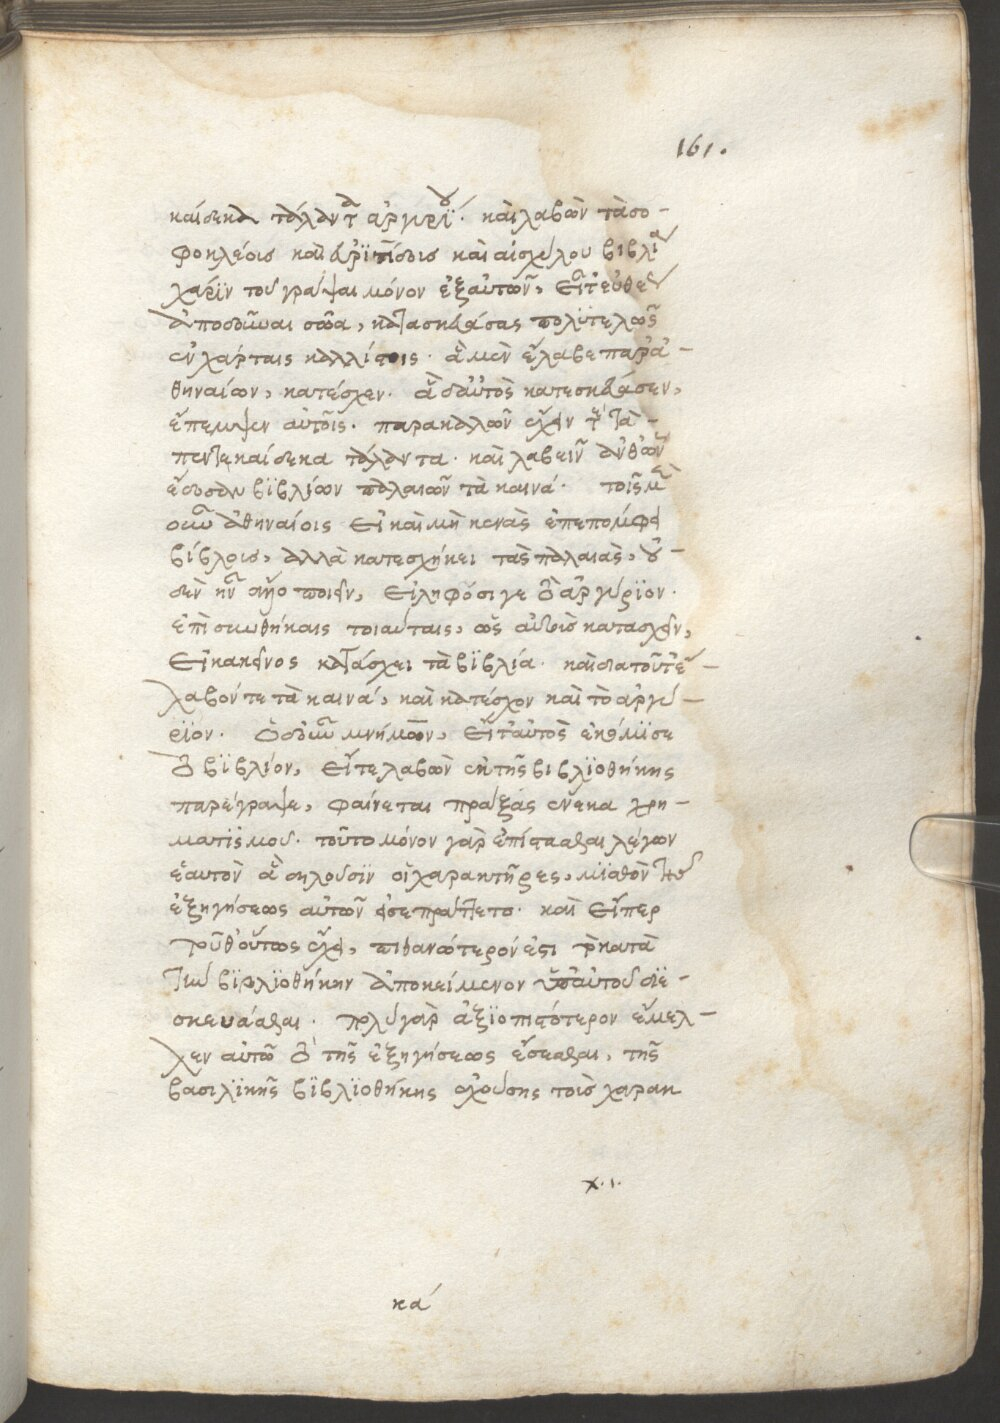 161.
καίδεκα τάλαντα ἀργυρίου. καὶ λαβὼν τὰ σο-
φοκλέους καὶ εὐρϊπίδους καὶ αἰσχύλου βιβλία
χάρϊν τοῦ γράψαι μόνον ἐξ αὐτῶν, εἶτ' εὐθὺ
ἀποδοῦναι σῶα, κατασκευάσας πολυτελῶς
ἐν χάρταις καλλίστοις. ἃ μὲν ἔλαβε παρ' ἀ-
θηναίων, κατέσχεν. ἃ δ' αὐτὸς κατεσκεύασεν,
ἔπεμψεν αὐτοῖς. παρακαλῶν ἔχειν τε τὰ
πεντεκαίδεκα τάλαντα. καὶ λαβεῖν ἀνθ' ὧν
ἔδοσαν βϊβλίων παλαιῶν τὰ καινά. τοῖς μὲν
οὖν ἀθηναίοις εἰ καὶ μὴ καινὰς ἐπεπόμφει
βίβλους, ἀλλὰ κατεσχήκει τὰς παλαιὰς, οὐ-
δὲν ἦν ἄλλο ποιεῖν, εἰληφόσι γε τὸ ἀργύρϊον.
ἐπὶ συνθήκαις τοιαύταις, ὡς αὐτοὺς κατασχεῖν,
εἰ κἀκεῖνος κατάσχει τὰ βϊβλία. καὶ διὰ τοῦτ' ἔ-
λαβόν τε τὰ καινά, καὶ κατέσχον καὶ τὸ ἀργύ-
ρϊον. ὁ δ' οὖν μνήμων, εἴτ' αὐτὸς ἐκόμϊσε
τὸ βϊβλίον, εἴτε λαβὼν ἐκ τῆς βιβλϊοθήκης
παρέγραψε, φαίνεται πράξας ἕνεκα χρη-
ματϊσμοῦ. τοῦτο μόνον γὰρ ἐπίστασθαι λέγων
ἑαυτὸν ἃ δηλοῦσϊν οἱ χαρακτῆρες, μϊσθὸν τῆς
ἐξηγήσεως αὐτῶν εἰσεπράττετο. καὶ εἴπερ
τοῦθ' οὕτως ἔχει, πιθανώτερόν ἐστι τὸ κατὰ
τὴν βϊβλϊοθήκην ἀποκείμενον ὑπ' αὐτοῦ δϊε-
σκευάσθαι. πολὺ γὰρ ἀξϊοπιστότερον ἔμελ-
λεν αὐτῶ τὸ τῆς ἐξηγήσεως ἔσεσθαι, τῆς
βασιλϊκῆς βϊβλϊοθήκης ἐχούσης τοὺς χαρακ
x.1.
κα